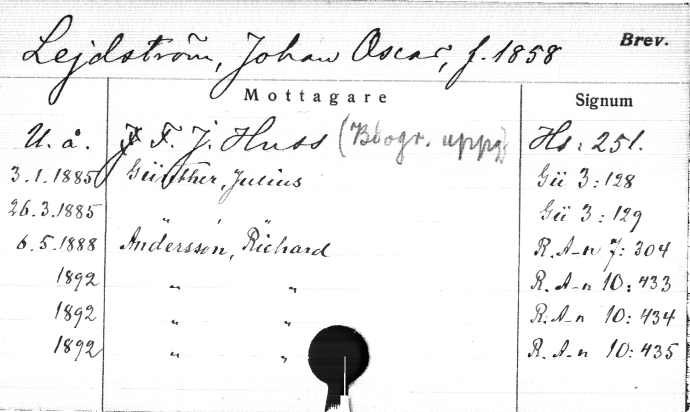 Lejdström, Johan Oscar, f. 1858 Brev.
Mottagare Signum
U. å. F. J. Huss (Biogr. uppg) Hs: 251.
3.1.1885 Günther, Julius Gü 3:128
26.3.1885 " " Gü 3:129
6.5.1888 Andersson, Richard R. A-n 7:304
1892 " " R. A-n 10:433
1892 " " R. A-n 10:434
1892 " " R. A-n 10:435